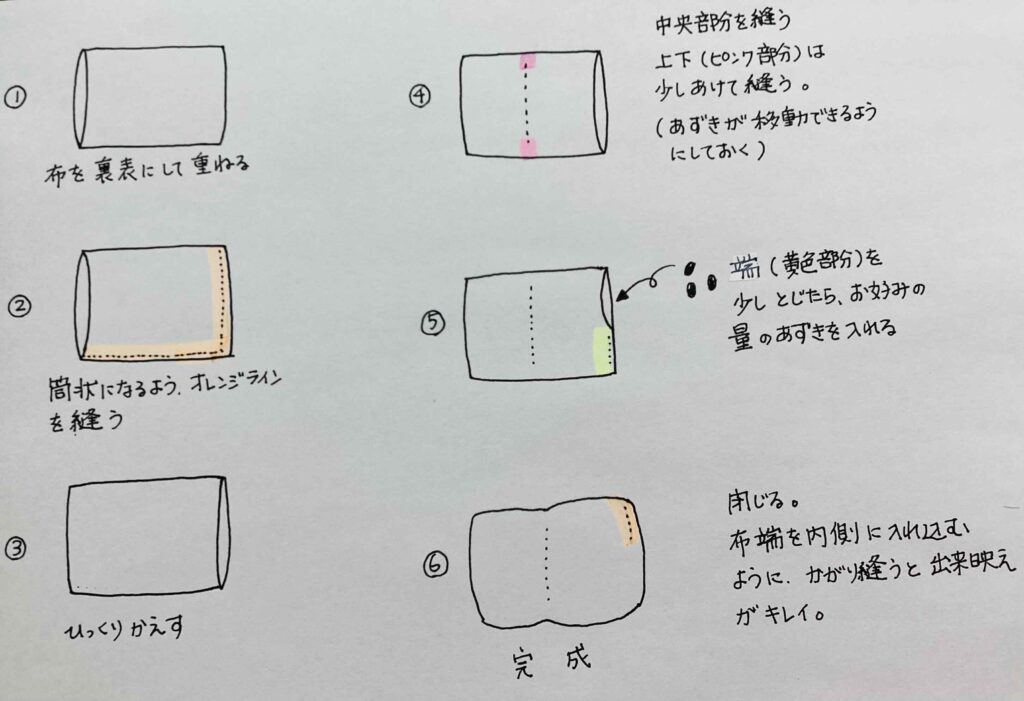 ①
布を裏表にして重ねる
②
筒状になるよう、オレンジライン
を縫う
③
ひっくりかえす
④
中央部分を縫う
上下(ピンク部分)は
少しあけて縫う。
(あずきが移動できるよう
にしておく)
⑤
端(黄色部分)を
少しとじたら、お好みの
量のあずきを入れる
⑥
閉じる。
布端を内側に入れ込む
ように、かがり縫うと出来映え
がキレイ。
完成